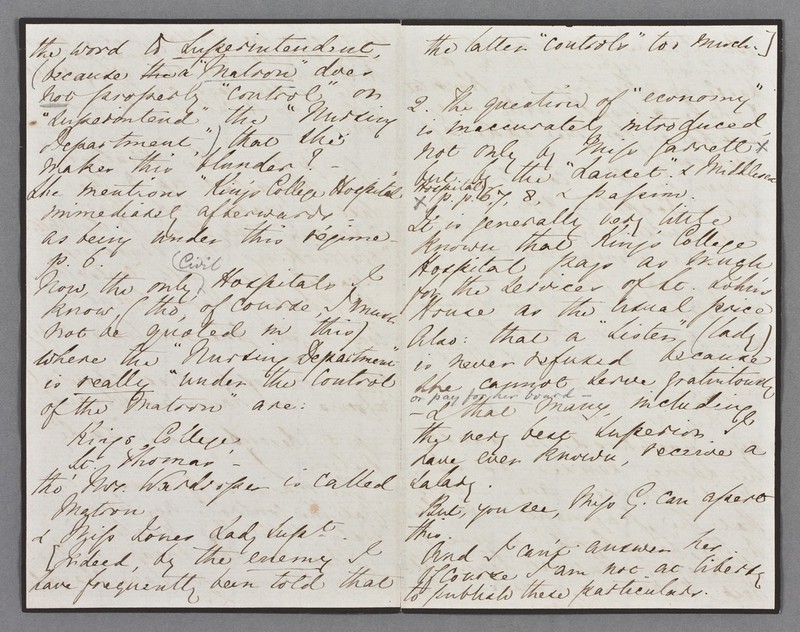 the word to Superintendent,
(because the a "Matron" does
not properly "control" or
"superintend" the "Nursing
Department,") that she
makes this blunder? –
She mentions "King's College Hospital"
immediately afterwards
as being under this régime –
p. 6.
(Civil)
Now, the only Hospitals I
know, (tho', of course, I must
not be quoted in this)
where the "Nursing Department"
is really "under the control
of the Matron" are:
King's College,
St. Thomas' –
tho' Mrs. Wardroper is called
Matron
& Miss Jones Lady Supt.
[Indeed, by the enemy I
have frequently been told that
the latter "controls" too much.]
2. The question of "economy"
is inaccurately introduced,
not only by Miss Garrett x
but by the "Lancet" & Middlesex
Hospital,
x p.p. 6, 7, 8, & passim.
It is generally very little
known that King's College
Hospital pays as much
for the services of St. John's
House as the usual price
Also: that a "Sister" (lady)
is never refused because
she cannot serve gratuitously
or pay for her board –
– & that many, including
the very best Superior I
have ever known, receive a
salary.
But, you see, Miss G. can assert
this.
And I can't answer her.
Of course I am not at liberty
to publish these particulars.